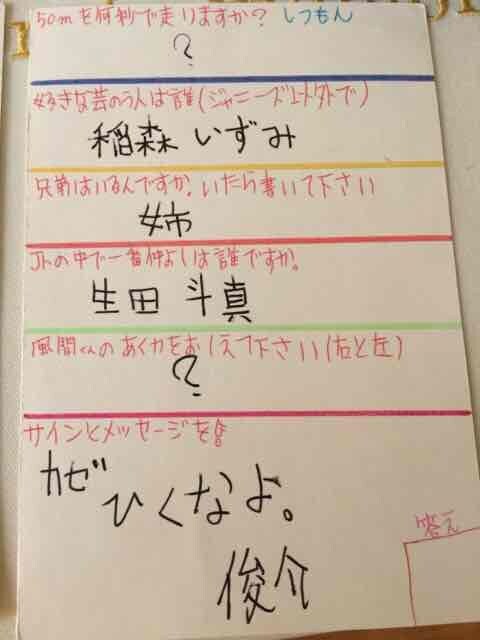 50mを何秒で走りますか? しつもん
?
好きな芸のう人は誰(ジャニーズ以外で)
稲森 いずみ
兄弟はいるんですか。いたら書いて下さい
姉
Jrの中で一番仲よしは誰ですか。
生田 斗真
風間くんのあく力をおしえて下さい(右と左)
?
サインとメッセージを
カゼ
ひくなよ。
俊介
答え